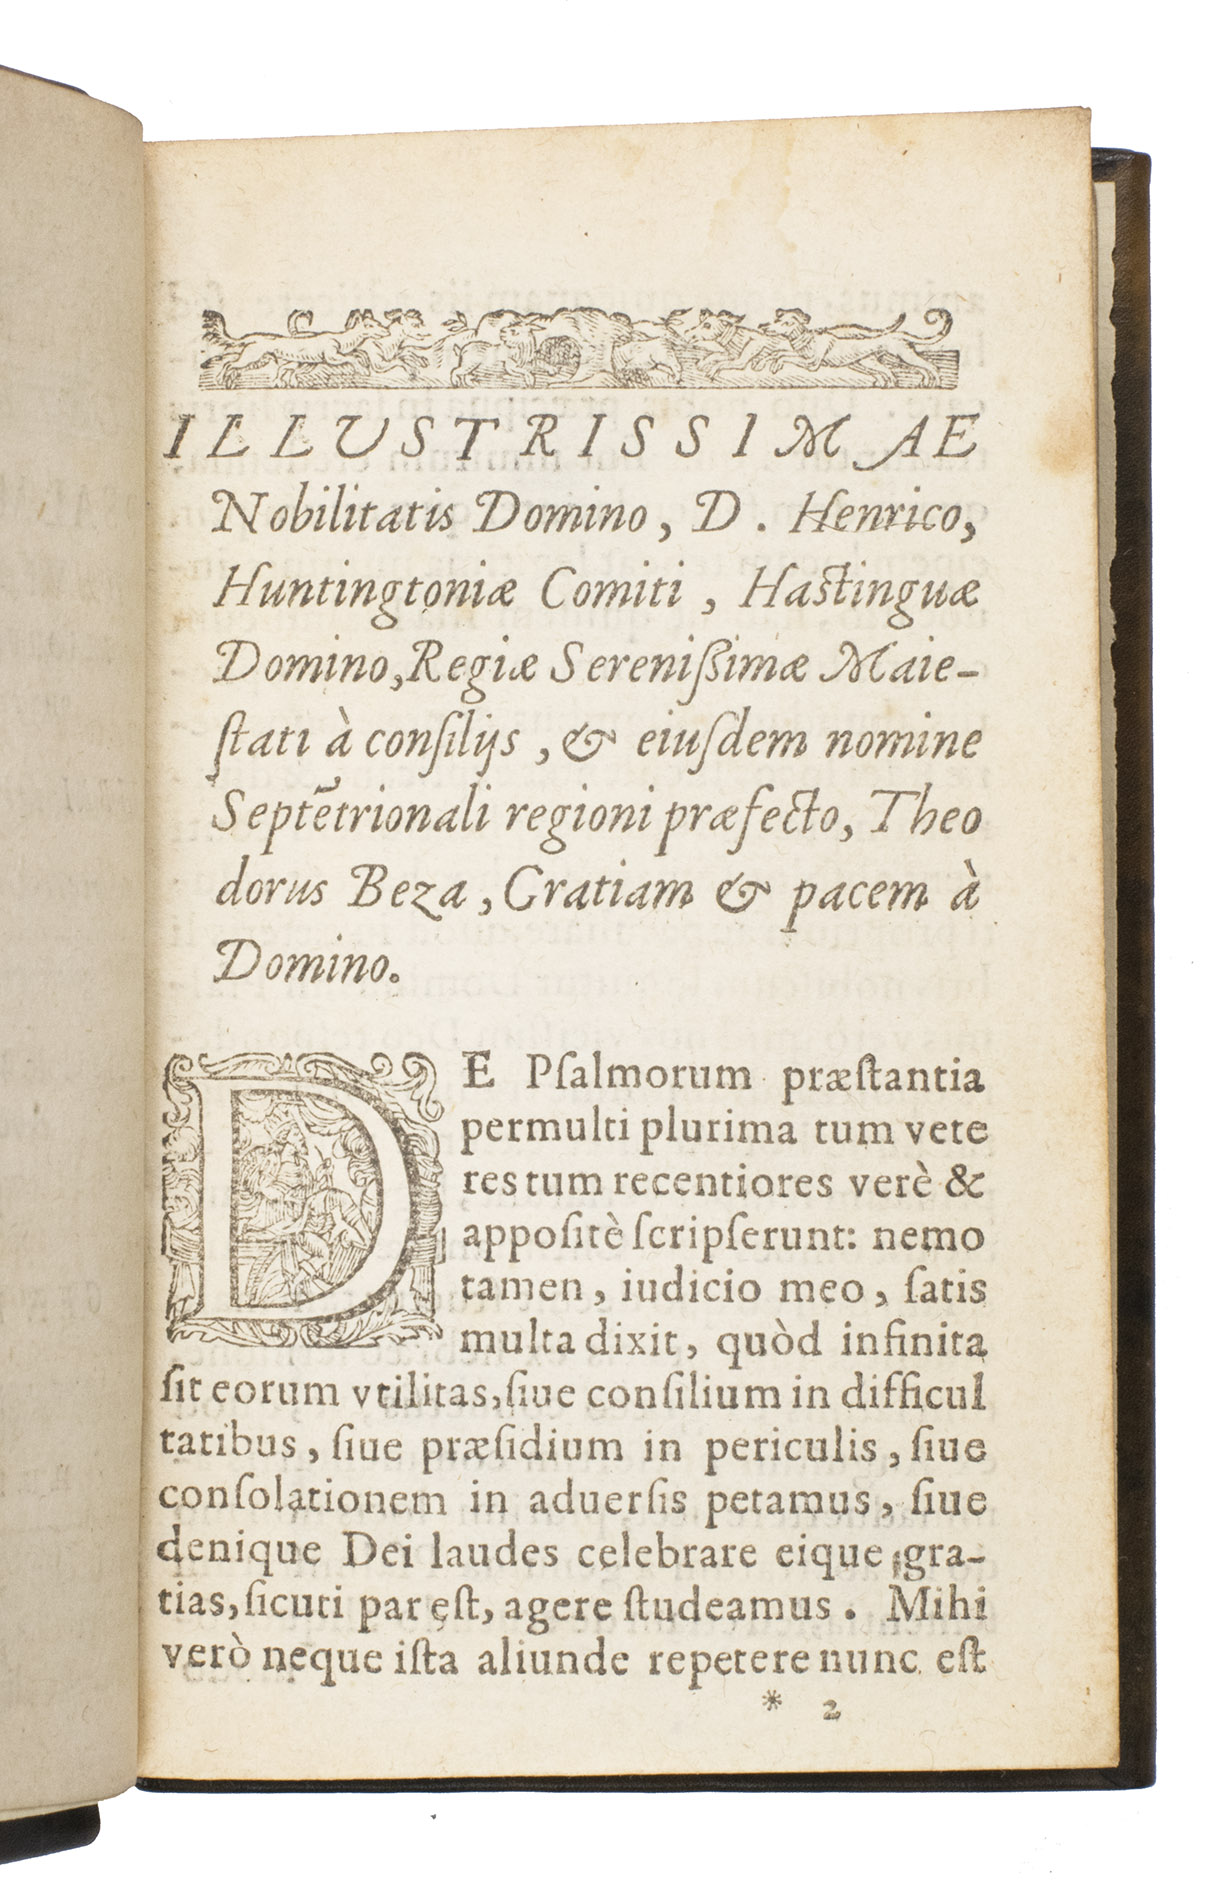 ILLUSTRISSIMAE
Nobilitatis Domino, D. Henrico,
Huntingtoniæ Comiti, Hastinguæ
Domino, Regiæ Sereniſßimæ Maie-
ſtati à conſilijs, & eiuſdem nomine
Septētrionali regioni præfecto, Theo
dorus Beza, Gratiam & pacem à
Domino.
DE Pſalmorum præſtantia
permulti plurima tum vete
res tum recentiores verè &
appoſitè ſcripſerunt: nemo
tamen, iudicio meo, ſatis
multa dixit, quòd infinita
ſit eorum vtilitas, ſiue conſilium in difficul
tatibus, ſiue præſidium in periculis, ſiue
conſolationem in aduerſis petamus, ſiue
denique Dei laudes celebrare eique gra-
tias, ſicuti par eſt, agere ſtudeamus. Mihi
verò neque iſta aliunde repetere nunc eſt
* 2